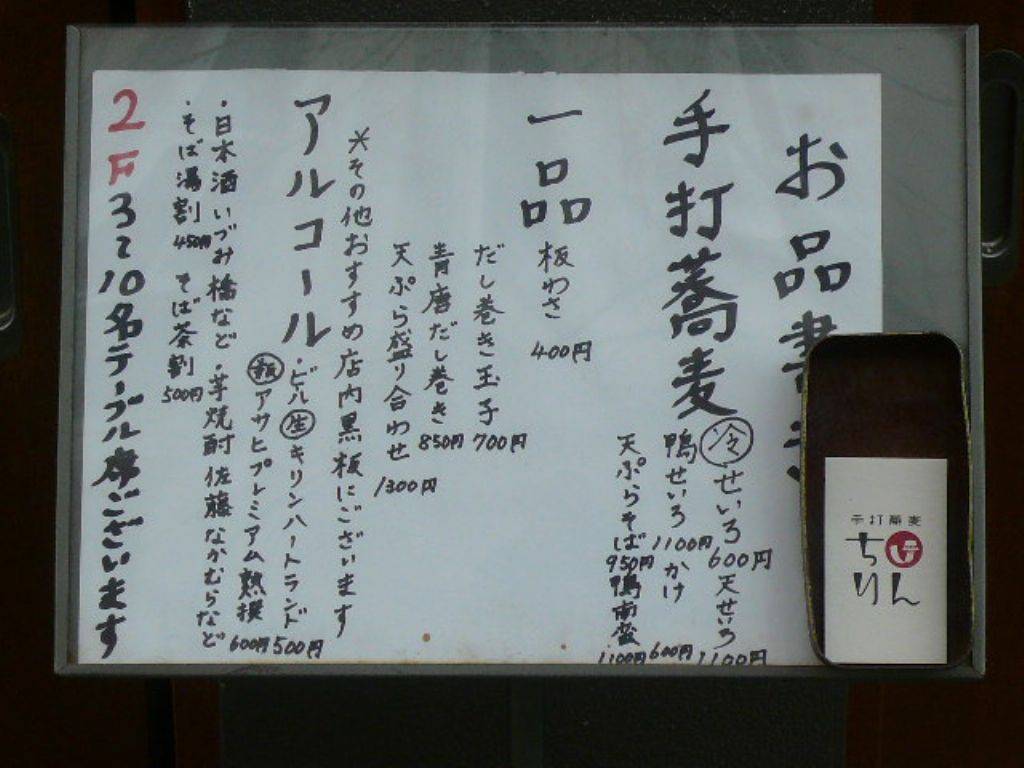 お品書き
手打蕎麦
冷 せいろ 600円 天せいろ 1100円
鴨せいろ 1100円 かけ 600円
天ぷらそば 950円 鴨南蛮 1100円
一品
板わさ 400円
だし巻き玉子 700円
青唐だし巻き 850円
天ぷら盛り合わせ 1300円
※その他おすすめ店内黒板にございます
アルコール
・ビール 生 キリンハートランド 500円
瓶 アサヒプレミアム熟撰 600円
・日本酒いづみ橋など ・芋焼酎 佐藤 なかむらなど
・そば湯割 450円 そば茶割 500円
2F 3~10名テーブル席ございます
手打蕎麦
ちりん